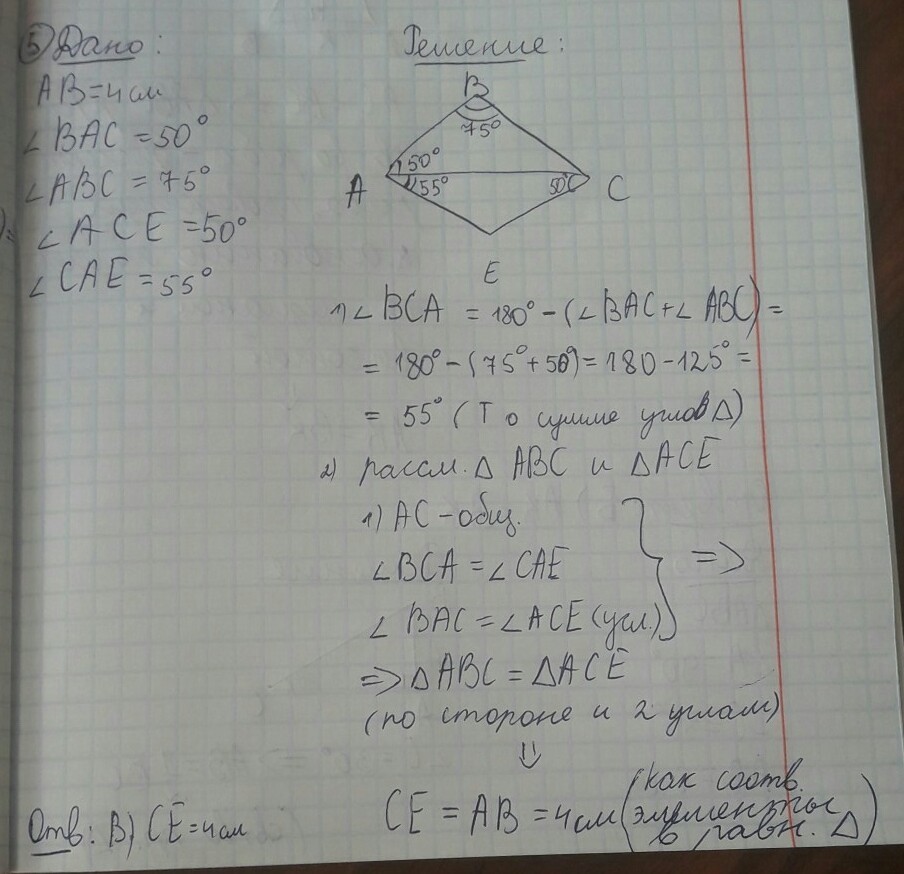 5) Дано:
AB=4см
∠BAC=50°
∠ABC=75°
∠ACE=50°
∠CAE=55°
Решение:
B
75°
50°
A
55°
50°
C
E
1) ∠BCA = 180° - (∠BAC+∠ABC) =
= 180° - (75°+50°) = 180 - 125° =
= 55° (Т о сумме углов Δ)
2) рассм. Δ ABC и ΔACE
1) AC - общ.
∠BCA = ∠CAE
∠BAC = ∠ACE (усл.)
=>
=> ΔABC = ΔACE
(по стороне и 2 углам)
⇓
CE = AB = 4см (как соотв.
элементы
в равн. Δ)
Отв: В) CE=4см